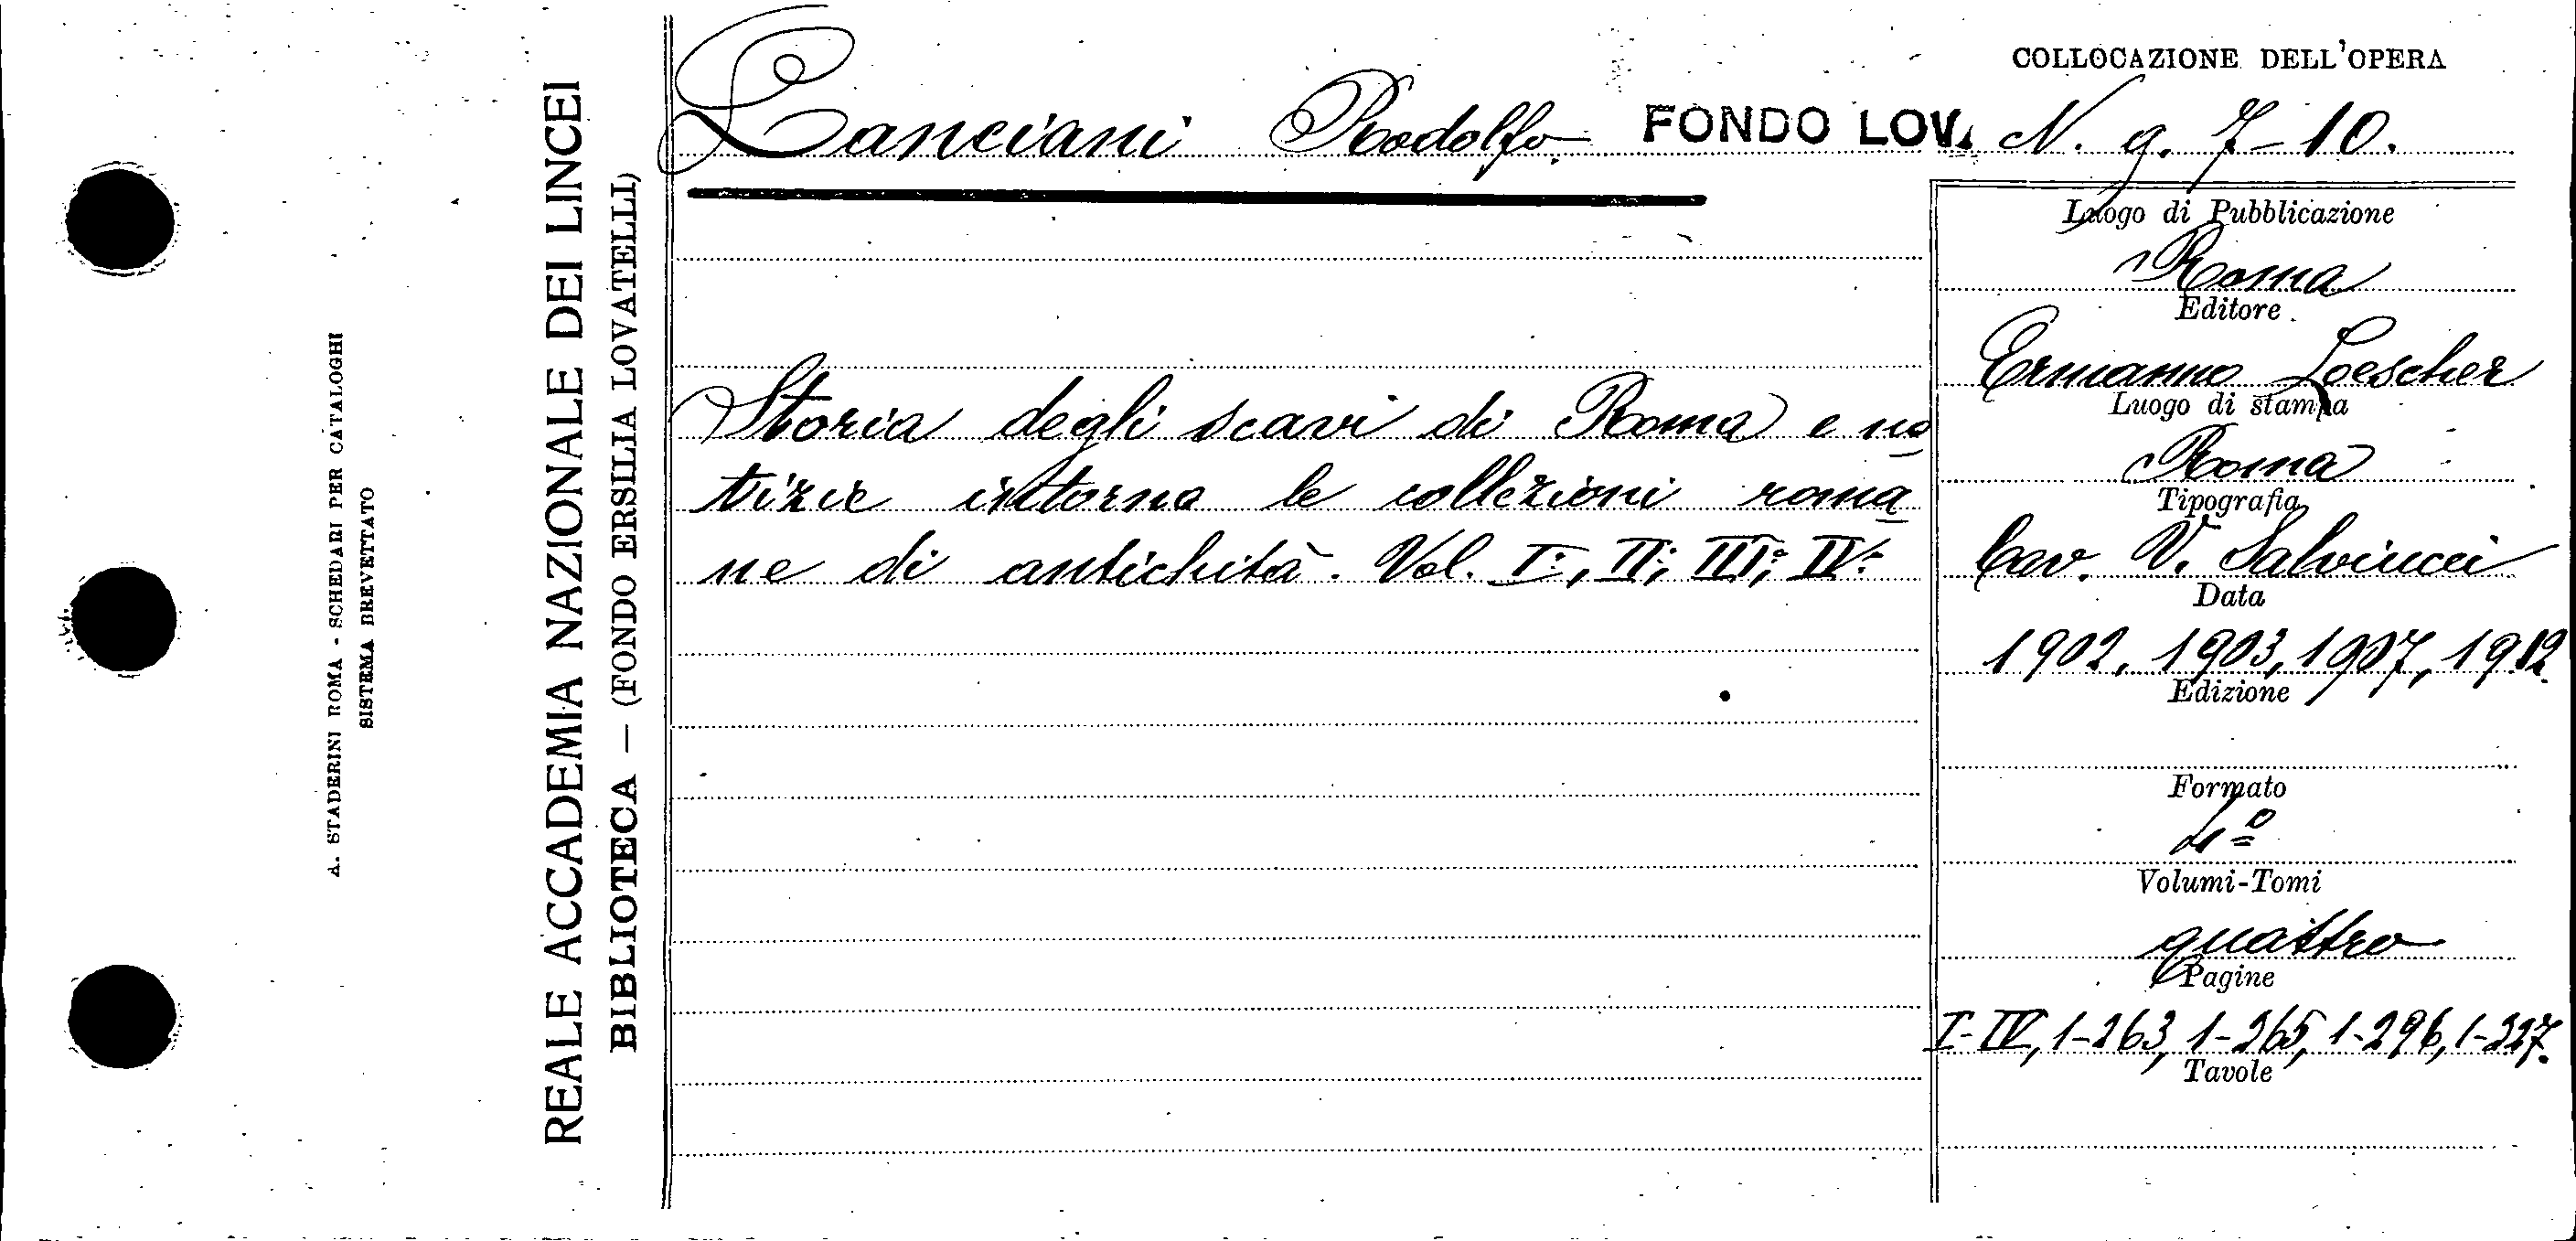 A. STADERINI ROMA - SCHEDARI PER CATALOGHI
SISTEMA BREVETTATO
REALE ACCADEMIA NAZIONALE DEI LINCEI
BIBLIOTECA — (FONDO ERSILIA LOVATELLI)
Lanciani Rodolfo.
Storia degli scavi di Roma e no
tizie intorno le collezioni roma
ne di antichità. Vol. I°, II°; III°; IV°
COLLOCAZIONE DELL'OPERA
FONDO LOV. N. g. 7-10.
Luogo di Pubblicazione
Roma
Editore
Ermanno Loescher
Luogo di stampa
Roma
Tipografia
Cav. V. Salviucci
Data
1902, 1903, 1907, 1912.
Edizione
Formato
4°
Volumi-Tomi
quattro
Pagine
I-IV, 1-263, 1-265, 1-296, 1-327.
Tavole